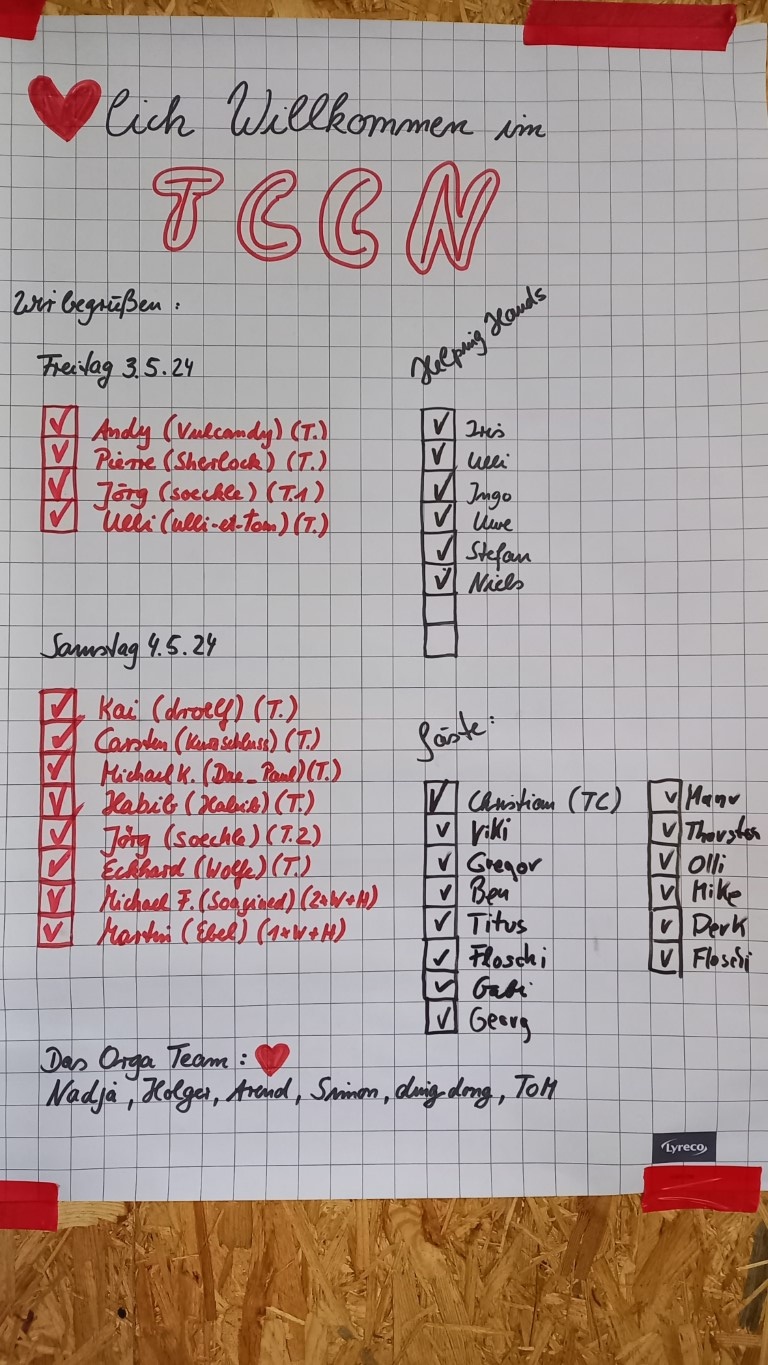 lich Willkommen im
TCCN
Wir begrüßen:
Freitag 3.5.24
Andy (Vulcandy) (T.)
Pierre (Sherlock) (T.)
Jörg (soeckle) (T.1)
Ulli (ulli-et-tom) (T.)
Helping Hands
Iris
Ulli
Ingo
Uwe
Stefan
Niels
Samstag 4.5.24
Kai (droelf) (T.)
Carsten (Kurzschluss) (T.)
Michael K. (Dae_Paul) (T.)
Habib (Habib) (T.)
Jörg (soeckle) (T.2)
Eckhard (Wolfe) (T.)
Michael F. (2*W+H)
Martin (Ebel) (1*W+H)
Gäste:
Christian (TC)
Viki
Gregor
Ben
Titus
Floschi
Gabi
Georg
Thorsten
Olli
Mike
Derk
Floschi
Das Orga Team:
Nadja, Holger, Arend, Simon, ding-dong, TOM
Lyreco